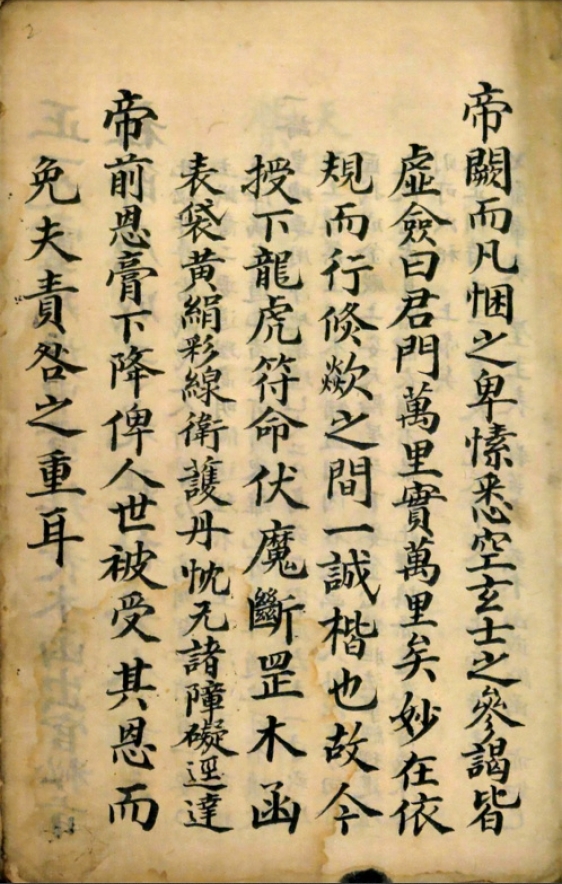 帝闕而凡悃之卑愫悉空玄士之參謁皆
虛僉曰君門萬里實萬里矣妙在依
規而行倏歘之間一誠楷也故今
授下龍虎符命伏魔斷罡木函
表袋黃絹彩線衛護丹忱无諸障礙逕達
帝前恩膏下降俾人世被受其恩而
免夫責咎之重耳